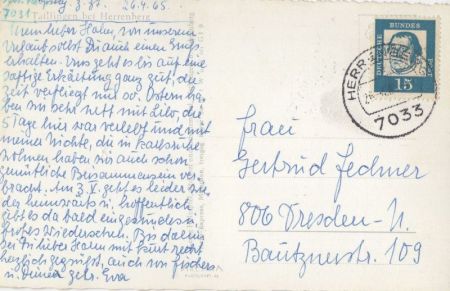 26.4.65
7031
Tailfingen bei Herrenberg
Mein lieber Hahn, von unserem
Urlaub sollst Du auch einen Gruß
erhalten. Uns geht es bis auf eine
saftige Erkältung ganz gut, die
Zeit verfliegt nur so. Ostern ha-
ben wir sehr nett mit Lilo, die
5 Tage hier war verlebt und mit
meiner Nichte, die in Karlsruhe
wohnen, haben wir auch schon
gemütliche Beisammensein ver-
bracht. Am 3.V. geht es leider wie-
der heimwärts u. hoffentlich
gibt es da bald ein gesundes u.
frohes Wiedersehen. Bis dahin
sei Du lieber Hahn mit Kurt recht
herzlich gegrüßt, auch von Fischers
u. Deiner Eva
DEUTSCHE BUNDESPOST
15
HERRENBERG
7033
Frau
Gertrud Fechner
806 Dresden-N.
Bautznerstr. 109